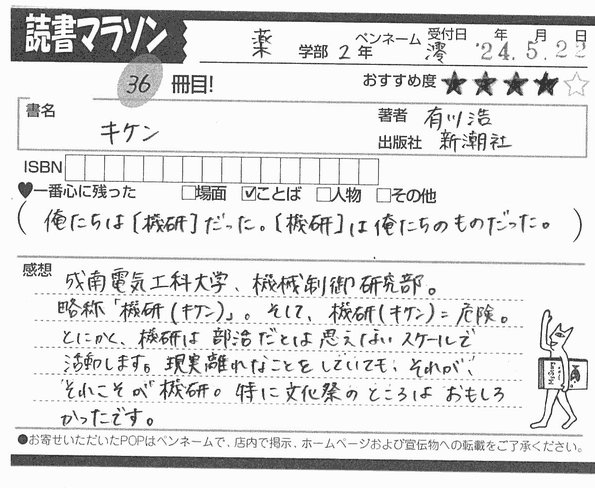 読書マラソン
薬 学部 2年 ペンネーム 澪 受付日 '24年5月22日
36 冊目! おすすめ度 ★★★★☆
書名 キケン
著者 有川浩
出版社 新潮社
ISBN
♥一番心に残った □場面 ☑ことば □人物 □その他
(俺たちは[機研]だった。[機研]は俺たちのものだった。)
感想
成南電気工科大学、機械制御研究部。
略称「機研(キケン)」。そして、機研(キケン)=危険。
とにかく、機研は部活だとは思えないスケールで
活動します。現実離れなことをしていても、それが、
それこそが機研。特に文化祭のところはおもしろ
かったです。
●お寄せいただいたPOPはペンネームで、店内で掲示、ホームページおよび宣伝物への転載をご了承ください。